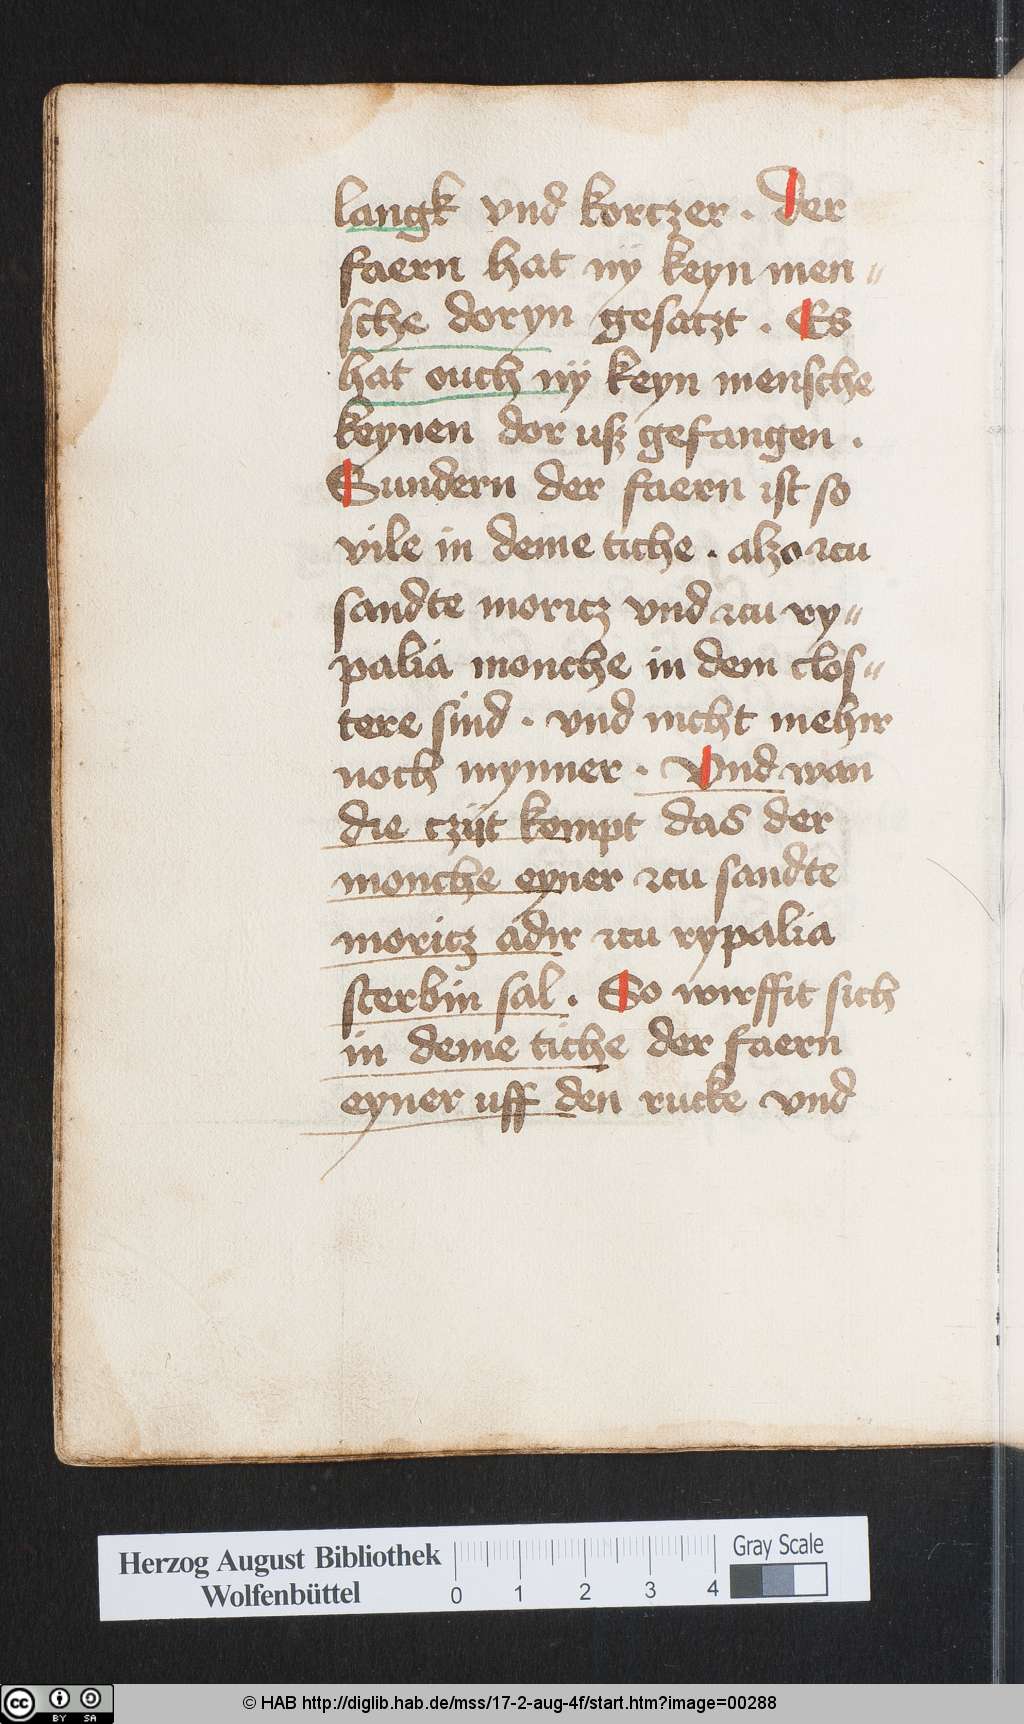 langk vnd kortzer . der
faern hat nÿ keyn men〃
sche doryn gesatzt . Es
hat ouch nÿ keyn mensche
keynen dor usz gefangen .
Sundern der faern ist so
vile in deme tiche . alzo zcu
sandte moritz vnd zcu ry〃
palia monche in dem clos〃
tere sind . vnd nicht mehir
noch mynner . Vnd wan
die czijt kompt das der
monche eyner zcu sandte
moritz adir zcu rypalia
sterbin sal . So wirffit sich
in deme tiche der faern
eyner uff den rucke vnd
Herzog August Bibliothek
Wolfenbüttel
0 1 2 3 4
Gray Scale
cc BY SA
© HAB http://diglib.hab.de/mss/17-2-aug-4f/start.htm?image=00288